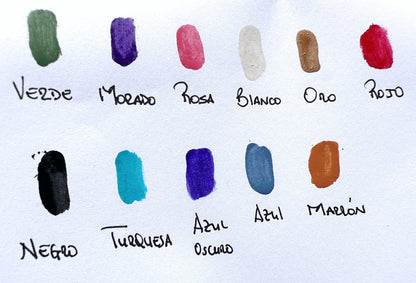 VERDE MORADO ROSA BLANCO ORO ROJO
NEGRO TURQUESA AZUL AZUL MARRÓN
OSCURO